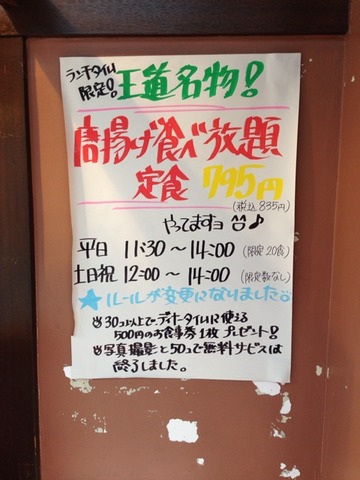 ランチタイム
限定! 王道名物!
唐揚げ食べ放題
定食 795円
(税込835円)
やってますヨ♪
平日 11:30～14:00 (限定20食)
土日祝 12:00～14:00 (限定数なし)
★ルールが変更になりました
30コ以上で、ディナータイムに使える
500円のお食事券1枚プレゼント!
写真撮影と50コで無料サービスは
終了しました。